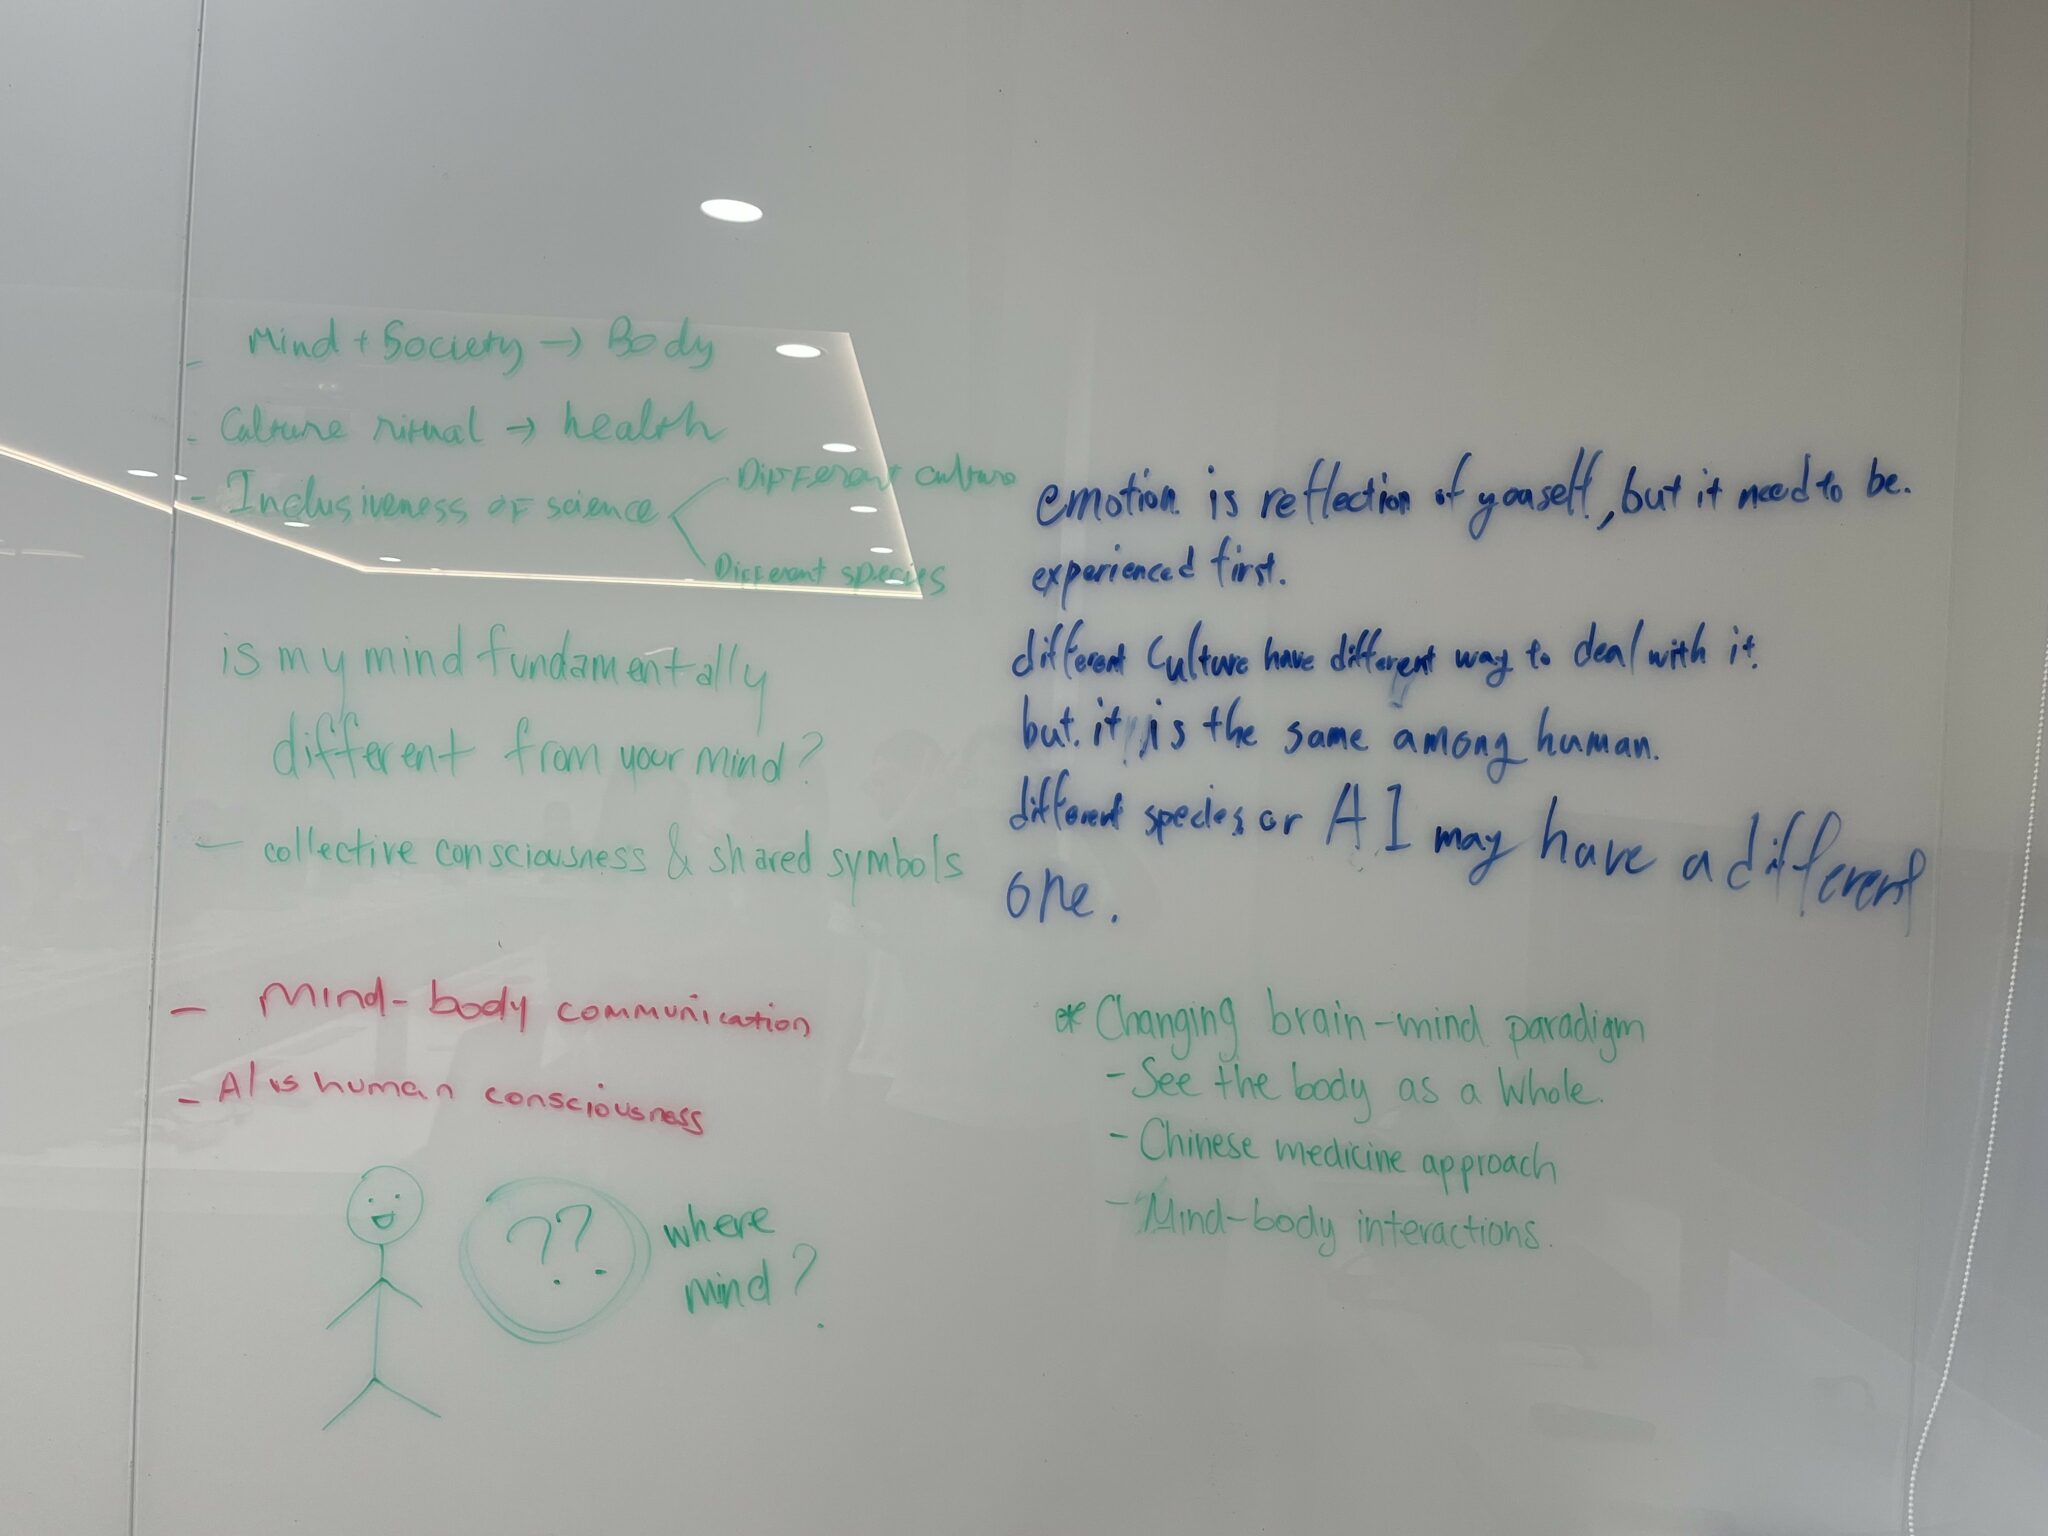 - Mind + Society → Body
- Culture ritual → health
- Inclusiveness of science
Different culture
Different species
is my mind fundamentally
different from your mind?
- collective consciousness & shared symbols
- Mind-body communication
- AI vs human consciousness
??
where
mind?
emotion is reflection of youself, but it need to be.
experienced first.
different Culture have different way to deal with it.
but. it is the same among human.
different species or AI may have a different
one.
* Changing brain-mind paradigm
- See the body as a whole.
- Chinese medicine approach
- Mind-body interactions.